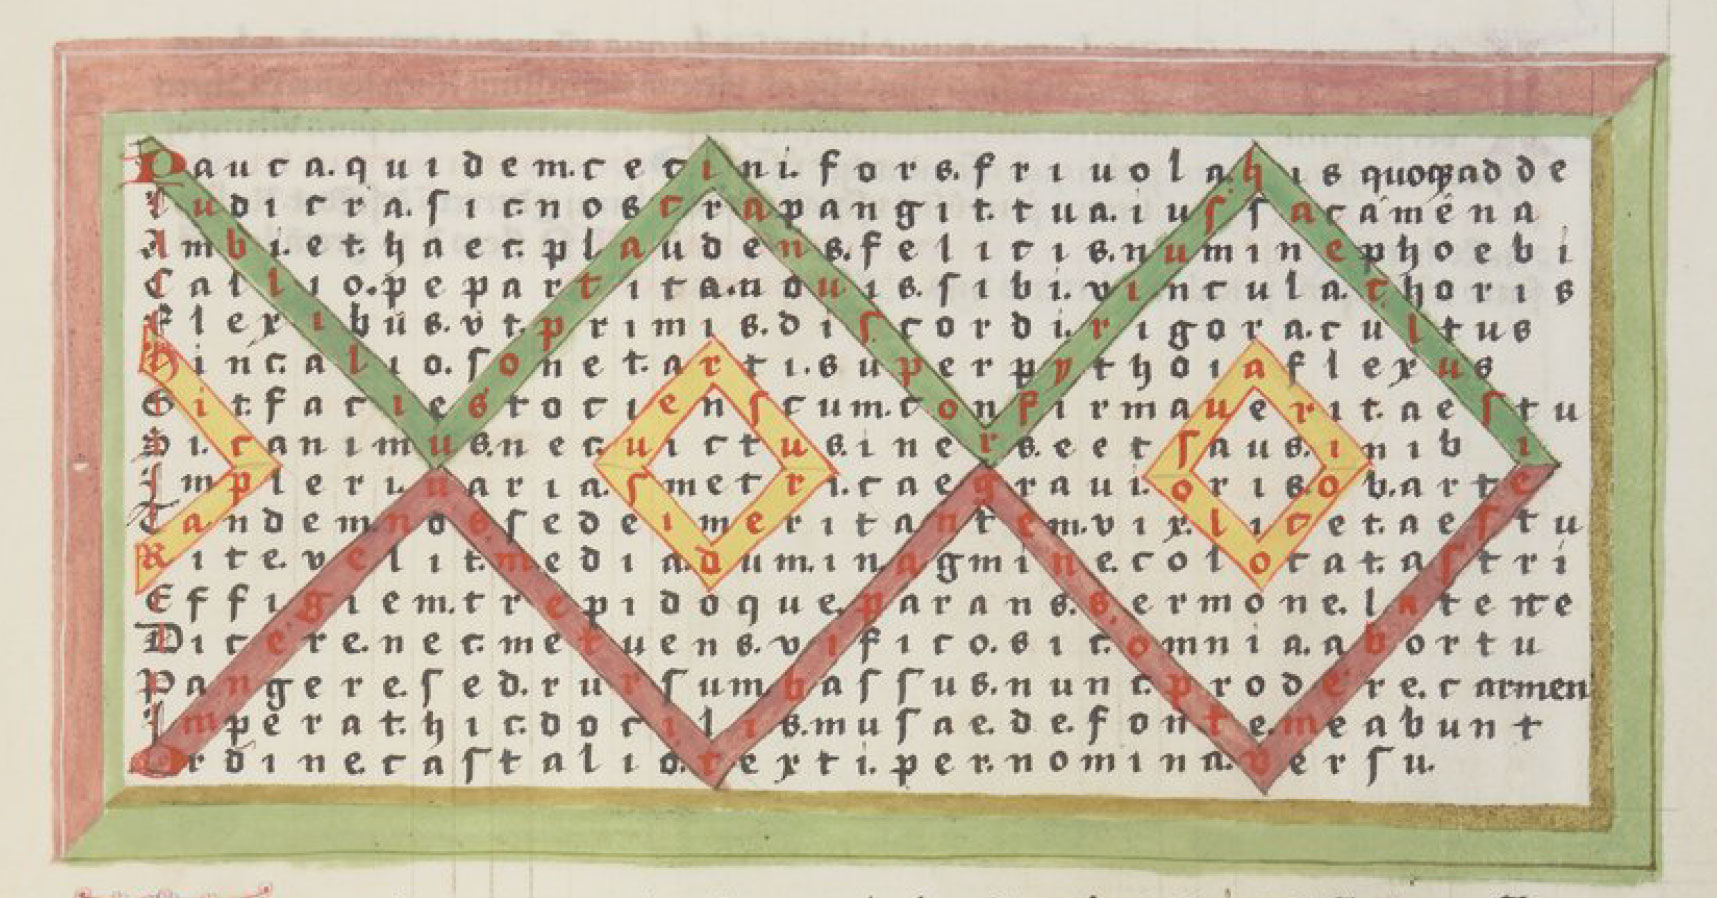 Pauca.quidem.cecini.fors.friuola his quoqꝫ adde
ludicra.sic.nostra pangit.tua.ius sacamena
Ambi.et.haec.plaudens.felicis.numine phoebi
Callio.pe partita.nduis.sibi.vincula.choris
flexibus.vt.primis.discordi.rigora.cultus
Hinc.alio.sonet.artis.uperpythoiaflexus
Sit.facilestocienscum.confirmauerit.aestu
Di.canimusnec.uictus.inerseetsaus.inib
Implerinaria.smetri.caegraui.orisob.arte
Tandemnossedeimeritantem.vix.licet.aestu
Rite.velit.mediadum.inagmine.colocatat.astri
Effigiem.trepidoque.parans.sermone.latente
Dicere.nec.metuens.vificosic.omnia.abortu
Pangere.sed.rursumbassus.nunc.prodere.carmen
Imperat.hic.docilis.musae.de.fonte.meabunt
Ordine.castalio.texti.per.nomina.versu.